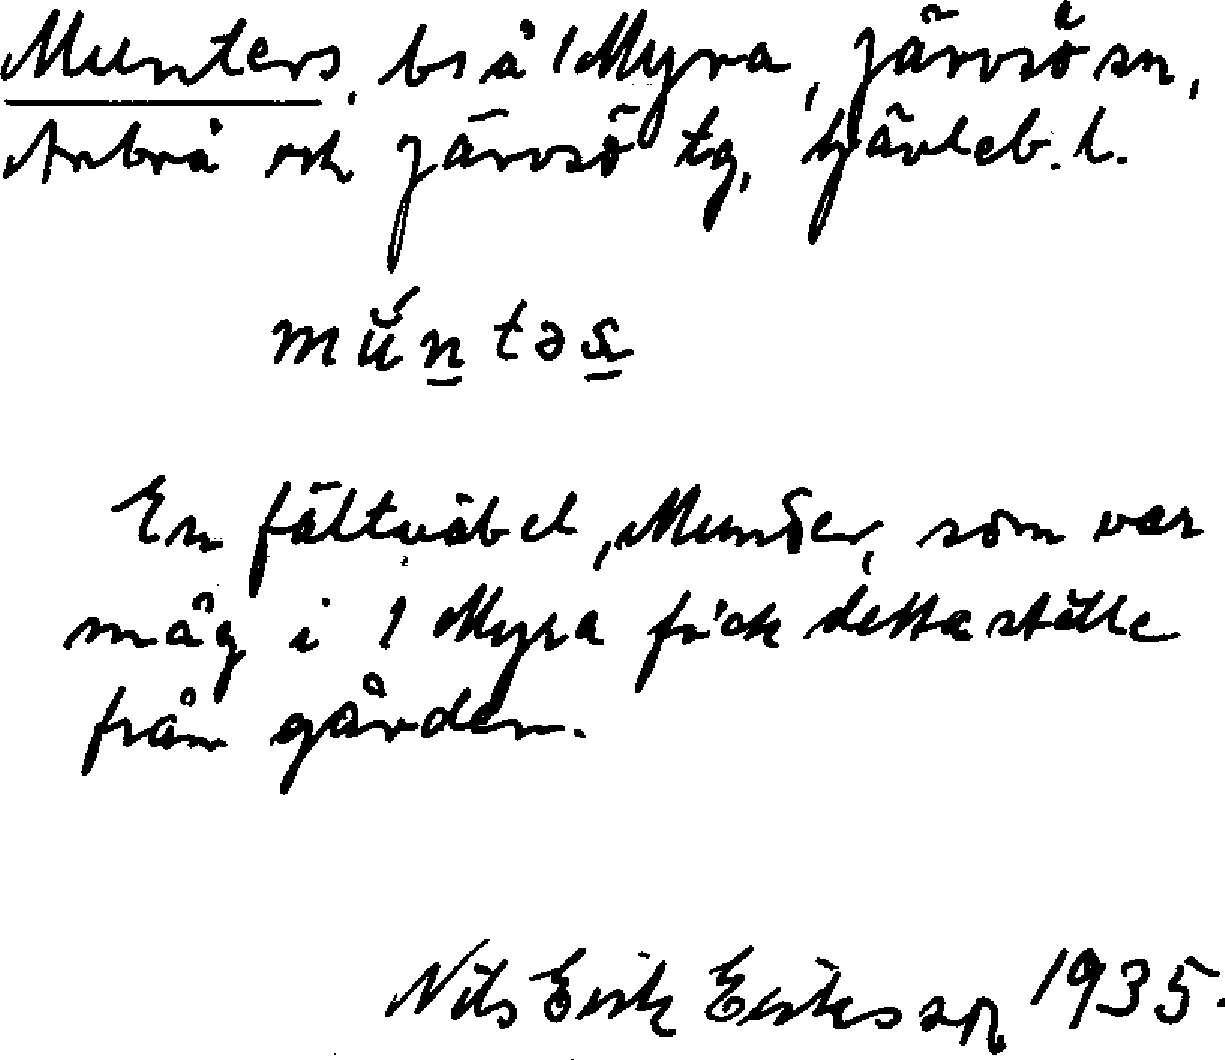 Munters, bs å 1 Myra, Järvsö sn,
Arbrå och Järvsö tg, Gävleb. l.
mŭ́ntəs
En fältväbel, Munter, som var
måg i 1 Myra fick detta ställe
från gården.
Nils Erik Eriksson 1935.